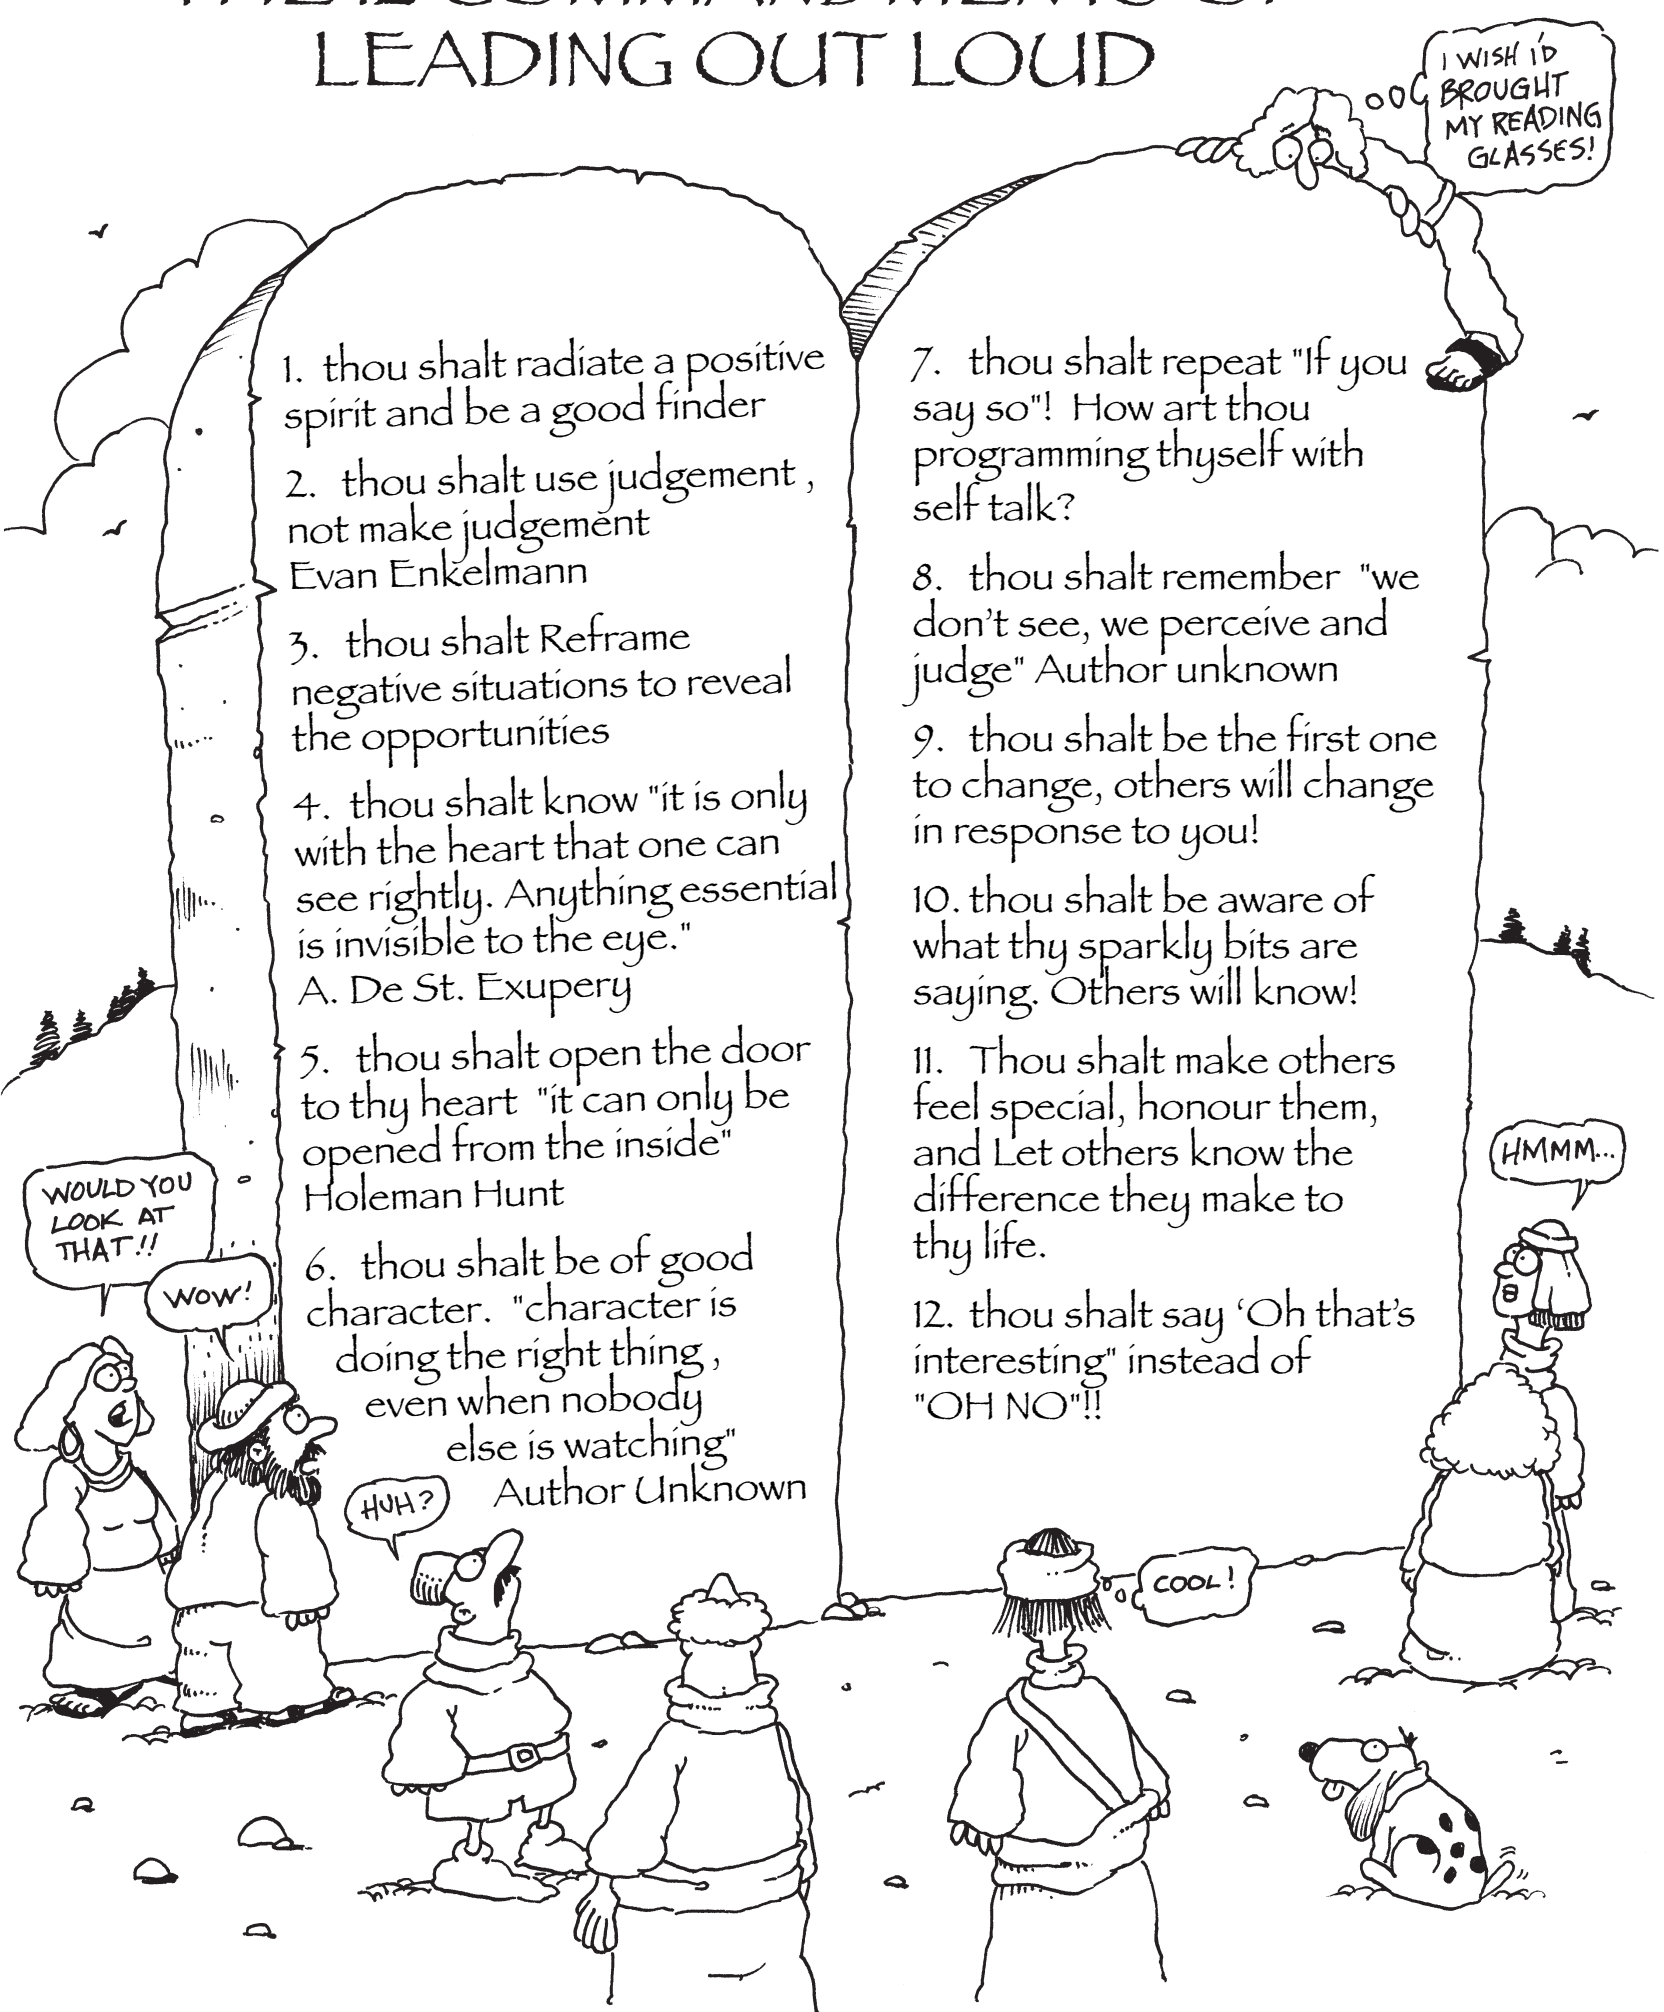 LEADING OUT LOUD
I WISH I'D
BROUGHT
MY READING
GLASSES!
1. thou shalt radiate a positive
spirit and be a good finder
2. thou shalt use judgement ,
not make judgement
Evan Enkelmann
3. thou shalt Reframe
negative situations to reveal
the opportunities
4. thou shalt know "it is only
with the heart that one can
see rightly. Anything essential
is invisible to the eye."
A. De St. Exupery
5. thou shalt open the door
to thy heart "it can only be
opened from the inside"
Holeman Hunt
6. thou shalt be of good
character. "character is
doing the right thing ,
even when nobody
else is watching"
Author Unknown
7. thou shalt repeat "If you
say so"! How art thou
programming thyself with
self talk?
8. thou shalt remember "we
don't see, we perceive and
judge" Author unknown
9. thou shalt be the first one
to change, others will change
in response to you!
10. thou shalt be aware of
what thy sparkly bits are
saying. Others will know!
11. Thou shalt make others
feel special, honour them,
and Let others know the
difference they make to
thy life.
12. thou shalt say 'Oh that's
interesting" instead of
"OH NO"!!
WOULD YOU
LOOK AT
THAT!!
WOW!
HUH?
COOL!
HMMM...